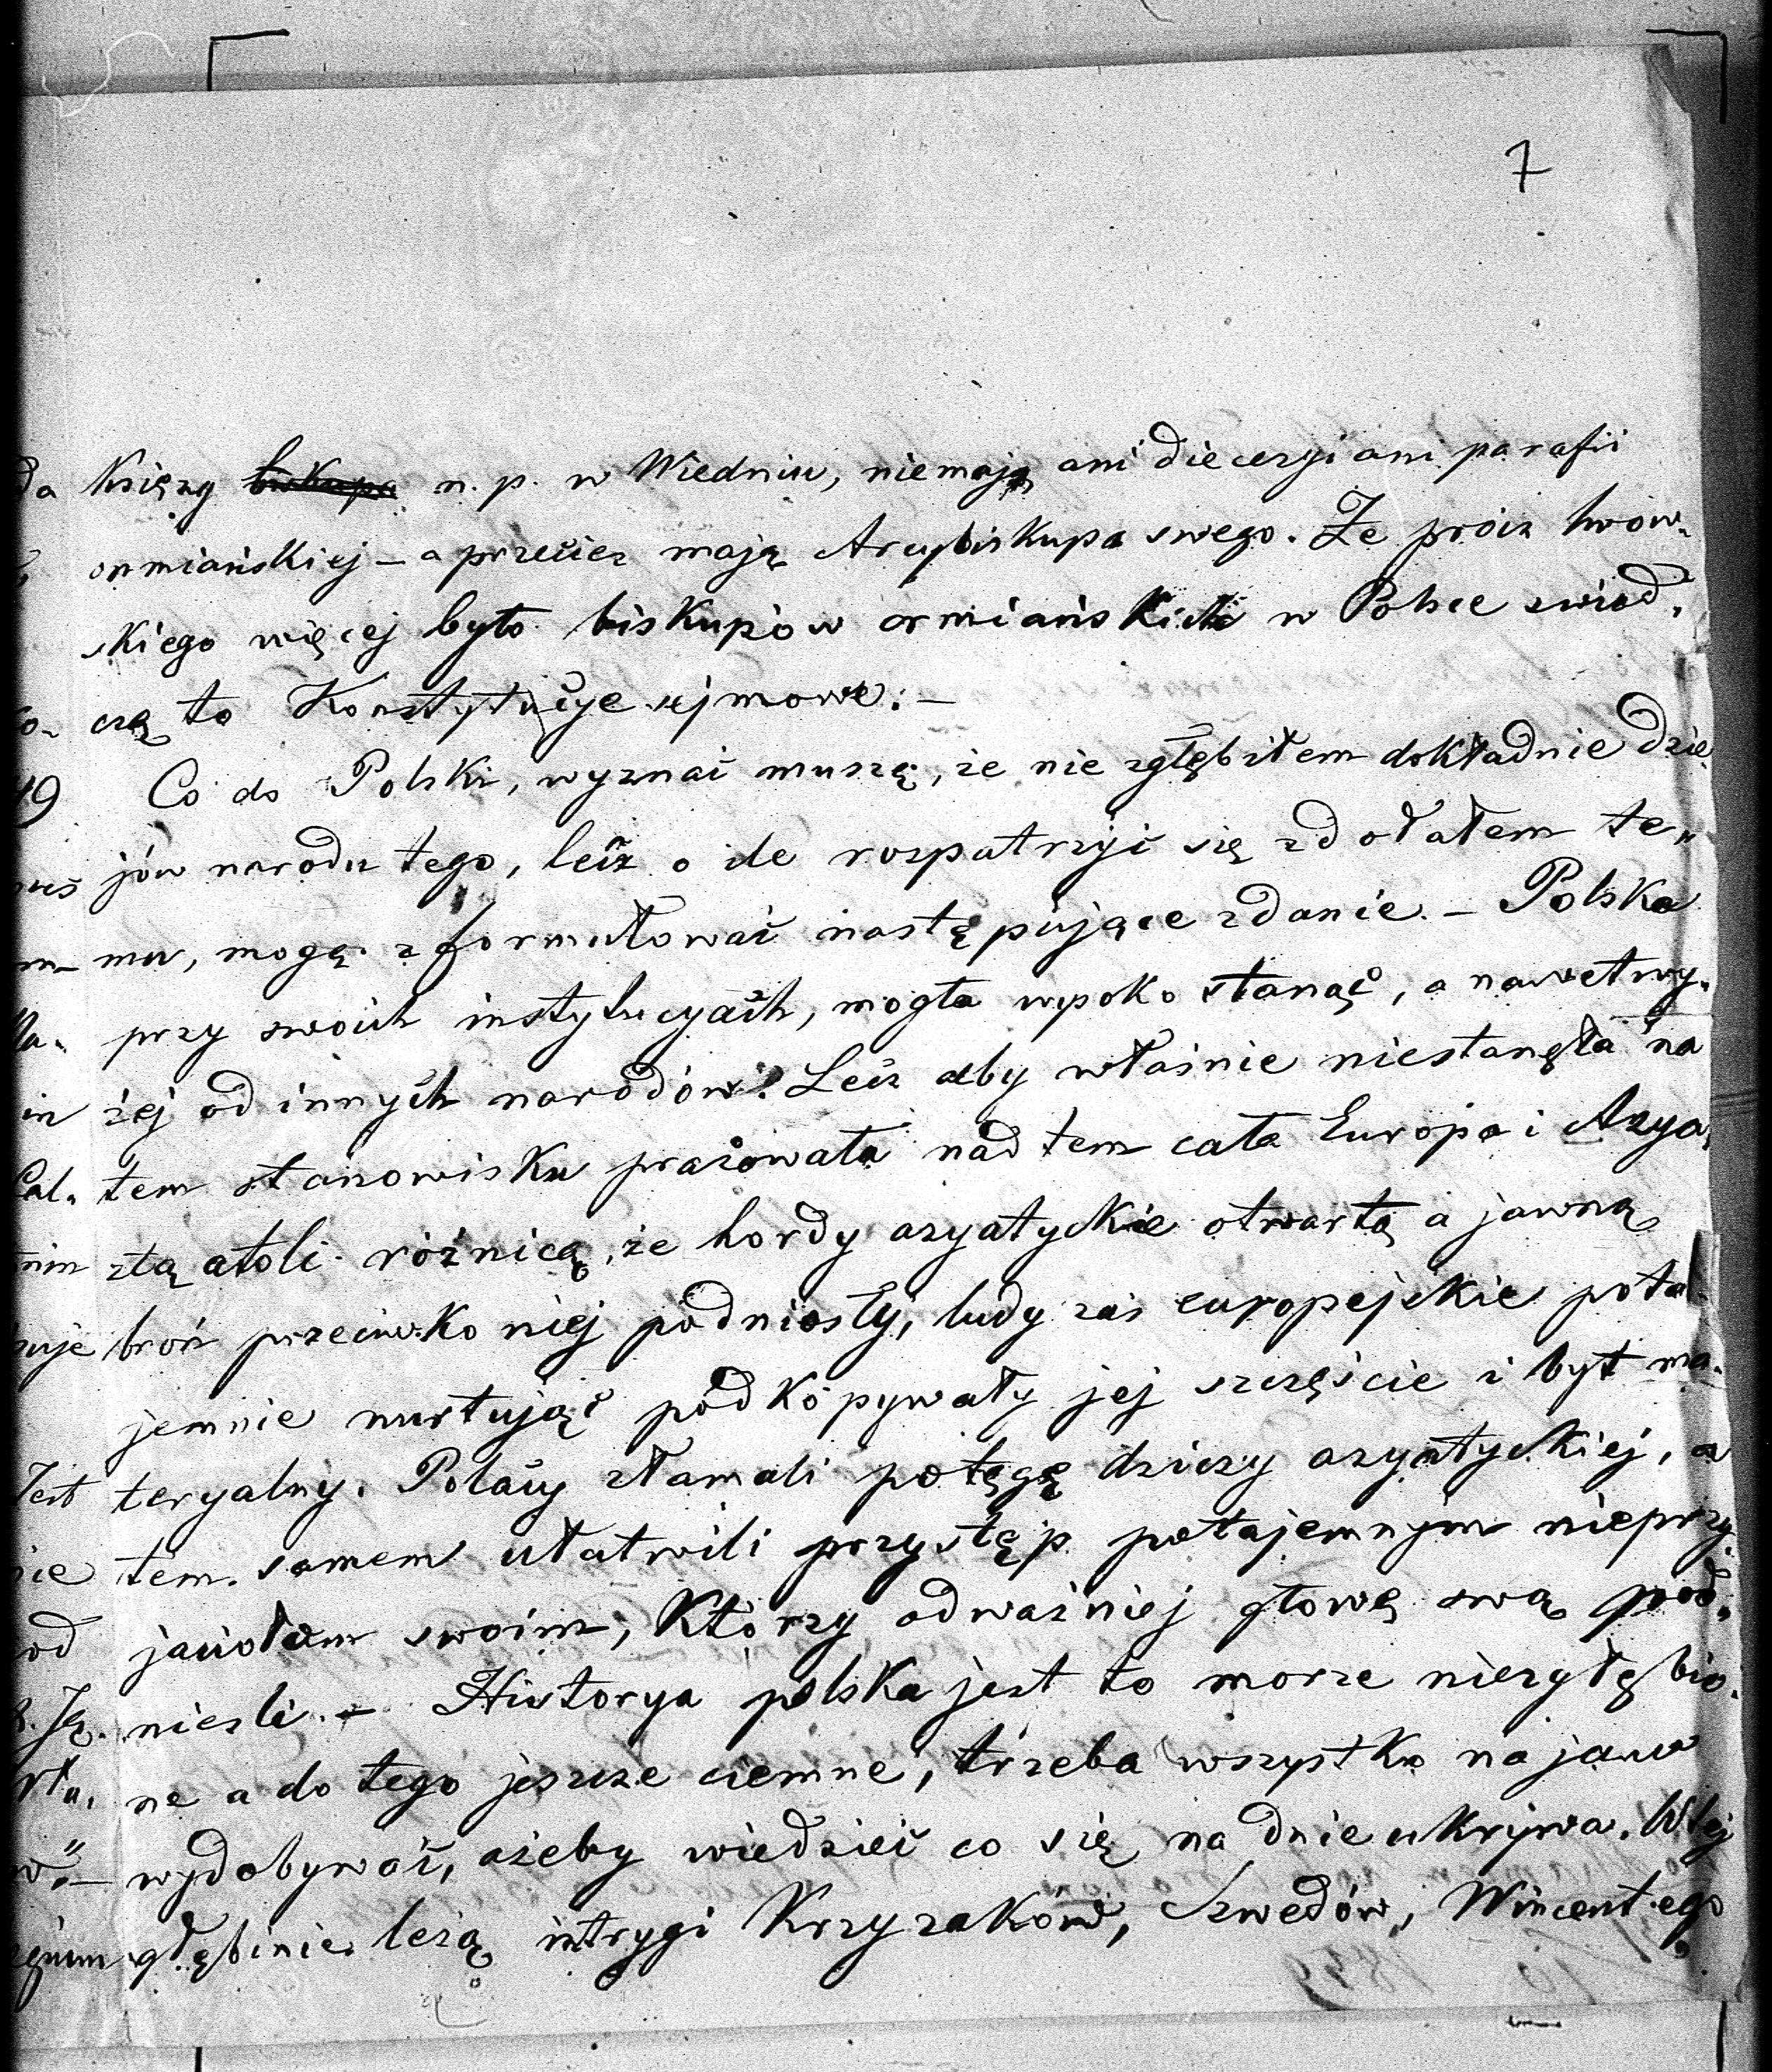 7
Księży biskupa n. p. w Wiedniu, niemają ani diecezyi ani parafii
ormiańskiej – a przecież mają Arcybiskupa swego. Że prócz lwow-
skiego więcej było biskupów ormiańskich w Polsce świad-
czą to Konstytucye sejmowe. –
Co do Polski, wyznać muszę, że nie zgłębiłem dokładnie dzie
jów narodu tego, lecz o ile rozpatrzyć się zdołałem te„
mu, mogę zformułować następujące zdanie. – Polska
przy swoich instytucyach, mogła wysoko stanąć, a nawet wy-
żej od innych narodów? Lecz aby właśnie niestanęła na
tem stanowisku pracowała nad tem cała Europa i Azya,
ztą atoli różnicą, że hordy azyatyckie otwartą a jawną
broń przeciwko niej podniosły, ludy zaś europejskie pota-
jemnie nurtując podkopywały jej szczęście i byt ma-
teryalny. Polacy złamali potęgę dziczy azyatyckiej, a
tem samem ułatwili przystęp potajemnym nieprzy-
jaciołom swoim, którzy odważniej głowę swą pod-
nieśli. – Historya polska jest to morze niezgłębio-
ne a do tego jeszcze ciemne, trzeba wszystko na jaw
wydobywać, ażeby wiedzieć co się na dnie ukrywa. W tej
głębinie leżą intrygi Krzyżaków, Szwedów, Wincentego